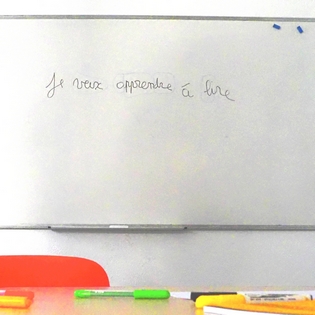 Je veux apprendre à lire